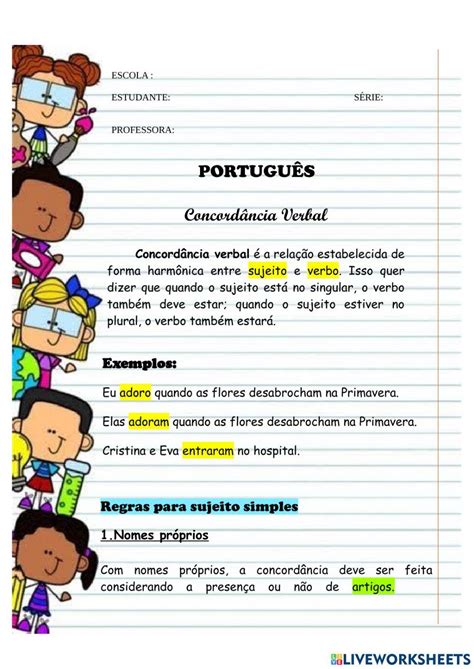 ESCOLA :
ESTUDANTE: SÉRIE:
PROFESSORA:
PORTUGUÊS
Concordância Verbal
Concordância verbal é a relação estabelecida de
forma harmônica entre sujeito e verbo. Isso quer
dizer que quando o sujeito está no singular, o verbo
também deve estar; quando o sujeito estiver no
plural, o verbo também estará.
Exemplos:
Eu adoro quando as flores desabrocham na Primavera.
Elas adoram quando as flores desabrocham na Primavera.
Cristina e Eva entraram no hospital.
Regras para sujeito simples
1.Nomes próprios
Com nomes próprios, a concordância deve ser feita
considerando a presença ou não de artigos.
LIVEWORKSHEETS